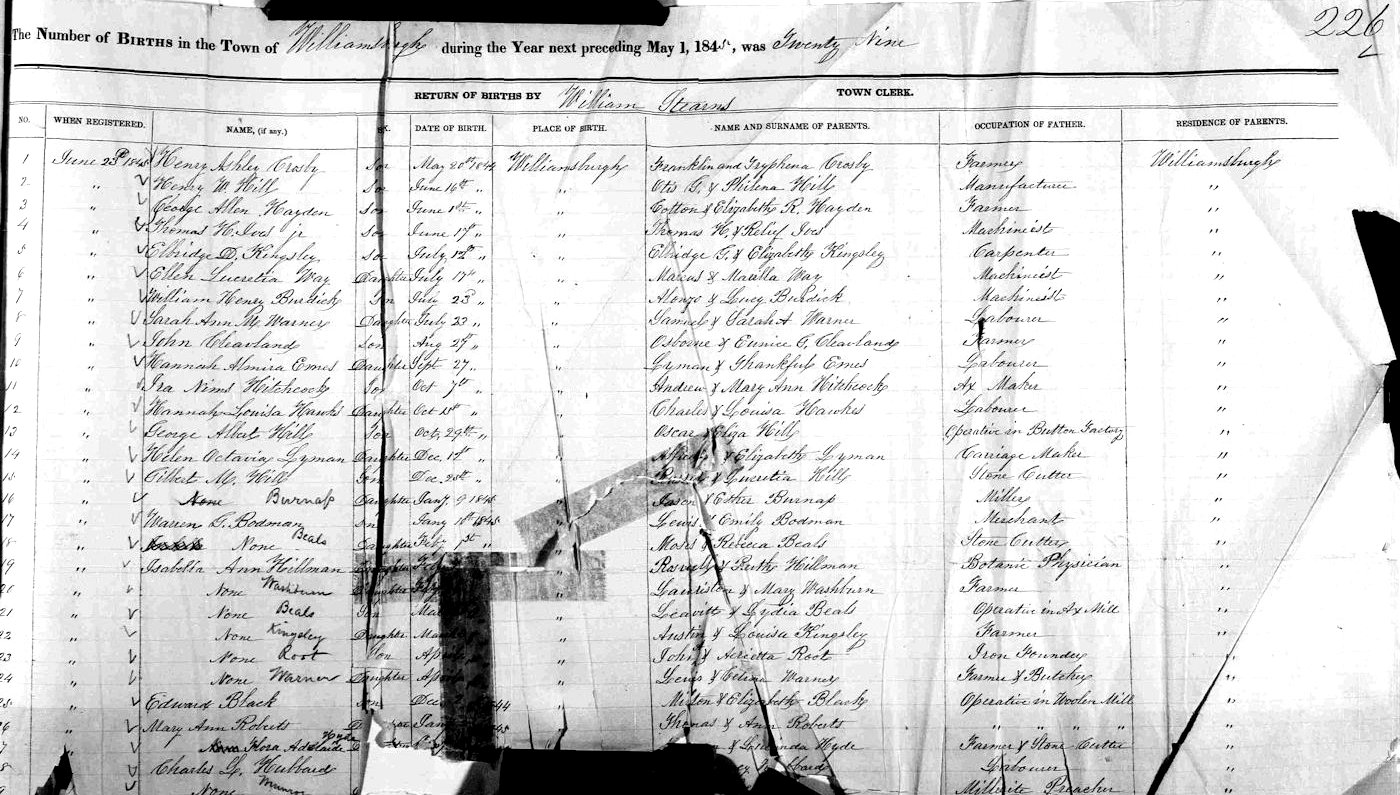 226
The Number of BIRTHS in the Town of Williamsburgh during the Year next preceding May 1, 1845, was Twenty Nine
RETURN OF BIRTHS BY William Stearns TOWN CLERK.
NO. WHEN REGISTERED. NAME, (if any.) SEX. DATE OF BIRTH. PLACE OF BIRTH. NAME AND SURNAME OF PARENTS. OCCUPATION OF FATHER. RESIDENCE OF PARENTS.
1 June 23d 1845 Henry Ashley Crosby Son May 20th 1844 Williamsburgh Franklin and Tryphena Crosby Farmer Williamsburgh
2 " Henry W. Hill Son June 16th " " Otis G. & Philena Hill Manufacturer "
3 " George Allen Hayden Son June " " Cotton & Elizabeth R. Hayden Farmer "
4 " Thomas H. Ives jr Son June 17th " " Thomas H. & Relief Ives Machinist "
5 " Elbridge D. Kingsley Son July 12th " " Elbridge G. & Elizabeth Kingsley Carpenter "
6 " Ellen Lucretia Way Daughter July 17th " " Marcus & Marilla Way Machinist "
7 " William Henry Burdick Son July 23d " " Alonzo & Lucy Burdick Machinist "
8 " Sarah Ann M. Warner Daughter July 23 " " Samuel & Sarah A Warner Labourer "
9 " John Cleavland Son Aug 27th " " Osbourne & Eunice G. Cleavland Farmer "
10 " Hannah Almira Emes Daughter Sept 27 " " Lyman & Thankful Emes Labourer "
11 " Ira Nims Hitchcock Son Oct 7th " " Andrew & Mary Ann Hitchcock Ax Maker "
12 " Hannah Louisa Hawks Daughter Oct " " Charles & Louisa Hawkes Labourer "
13 " George Albert Hill Son Oct 29th " " Oscar & Eliza Hill Operative in Button Factory "
14 " Helen Octavia Lyman Daughter Dec. 12th " " & Elizabeth Lyman Carriage Maker "
15 " Tilbert M. Hill Son Dec. 25th " " & Lucretia Hill Stone Cutter "
16 " None Burnap Daughter Jany. 9 1845 " Jason & Esther Burnap Miller "
17 " Warren G. Bodman Son Jany 1845 " Lewis & Emily Bodman Merchant "
18 " None Beals Daughter Feb. 1st " " Moses & Rebecca Beals Stone Cutter "
19 " Isabella Ann Hillman Daughter Feb " & Ruth Hillman Botanic Physician "
20 " None Washburn Daughter " & Mary Washburn Farmer "
21 " None Beals Son Mar " Leavitt & Lydia Beals Operative in Ax Mill "
22 " None Kingsley Daughter March " Austin & Louisa Kingsley Farmer "
23 " None Root Son April " John & Root Iron Founder "
24 " None Warner Daughter April " Lewis & Warner Farmer & Butcher "
25 " Edward Black Son Dec 44 " Milton & Elizabeth Black Operative in Woolen Mill "
26 " Mary Ann Roberts Jan 45 " Thomas & Ann Roberts " " " " "
7 " None Flora Adelaide Hyde " & Lucinda Hyde Farmer & Stone Cutter "
8 " Charles L. Hubbard Labourer "
9 " None Munroe Millerite Preacher "